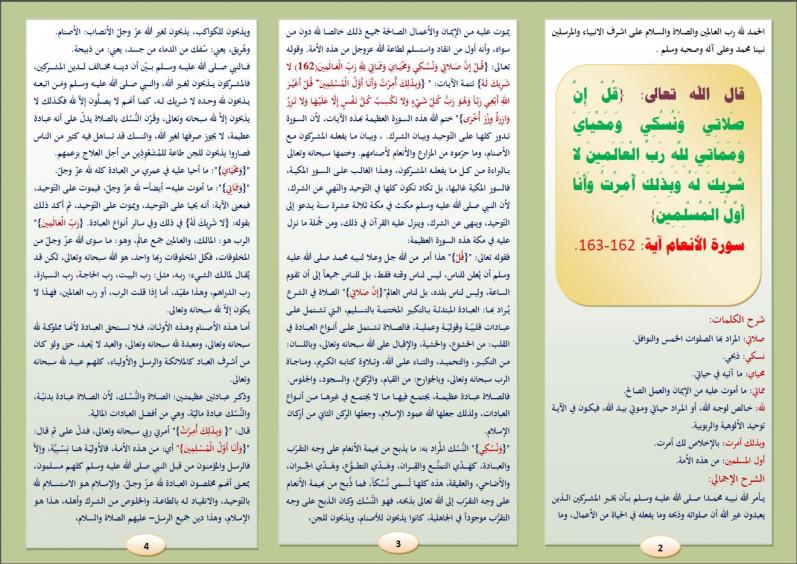 الحمد لله رب العالمين والصلاة والسلام على اشرف الانبياء والمرسلين
نبينا محمد وعلى آله وصحبه وسلم .
قال الله تعالى: {قُلْ إِنَّ
صَلَاتِي وَنُسُكِي وَمَحْيَايَ
وَمَمَاتِي لِلَّهِ رَبِّ الْعَالَمِينَ لَا
شَرِيكَ لَهُ وَبِذَلِكَ أُمِرْتُ وَأَنَا
أَوَّلُ الْمُسْلِمِينَ}
سورة الأنعام آية: 162-163.
شرح الكلمات:
صلاتي: المراد بها الصلوات الخمس والنوافل.
نسكي: ذبحي.
محياي: ما آتيه في حياتي.
مماتي: ما أموت عليه من الإيمان والعمل الصالح.
لله: خالص لوجه الله، أو المراد حياتي وموتي بيد الله، فيكون في الآية
توحيد الألوهية والربوبية.
وبذلك أمرت: بالإخلاص لك أمرت.
أول المسلمين: من هذه الأمة.
الشرح الإجمالي:
يأمر الله نبيه محمدا صلى الله عليه وسلم بأن يخبر المشركين الذين
يعبدون غير الله أن صلواته وذبحه وما يفعله في الحياة من الأعمال، وما
2
يموت عليه من الإيمان والأعمال الصالحة جميع ذلك خالصا لله دون من
سواه، وأنه أول من انقاد واستسلم لطاعة الله عزوجل من هذه الأمة. وقوله
تعالى: {قُلْ إِنَّ صَلَاتِي وَنُسُكِي وَمَحْيَايَ وَمَمَاتِي لِلَّهِ رَبِّ الْعَالَمِينَ(162) لَا
شَرِيكَ لَهُ} تتمة الآيات: "{وَبِذَلِكَ أُمِرْتُ وَأَنَا أَوَّلُ الْمُسْلِمِينَ" قُلْ أَغَيْرَ
اللَّهِ أَبْغِي رَبًّا وَهُوَ رَبُّ كُلِّ شَيْءٍ وَلَا تَكْسِبُ كُلُّ نَفْسٍ إِلَّا عَلَيْهَا وَلَا تَزِرُ
وَازِرَةٌ وِزْرَ أُخْرَى}" ختم الله هذه السورة العظيمة بهذه الآيات، لأن السورة
تدور كلها على التوحيد وبيان الشرك. ، وبيان ما يفعله المشركون مع
الأصنام، وما حرّموه من المزارع والأنعام لأصنامهم. وختمها سبحانه وتعالى
بالبراءة من كل ما يفعله المشركون، وهذا الغالب على السور المكية،
فالسور المكية غالبها، بل تكاد تكون كلها في التوحيد والنهي عن الشرك،
لأن النبي صلى الله عليه وسلم مكث في مكة ثلاثة عشرة سنة يدعو إلى
التوحيد، وينهى عن الشرك، وينزل عليه القرآن في ذلك، ومن جُملة ما نزل
عليه في مكة هذه السورة العظيمة:
فقوله تعالى: "{قُلْ}" هذا أمر من الله جل وعلا لنبيه محمد صلى الله عليه
وسلم أن يُعلن للناس، ليس لناس وقته فقط، بل للناس جميعاً إلى أن تقوم
الساعة، وليس لناس بلده، بل لناس العالم"{إِنَّ صَلَاتِي}" الصلاة في الشرع
يُراد بها: العبادة المبتدئة بالتكبير المختتمة بالتسليم، التي تشتمل على
عبادات قلبيّة وقوليّة وعملية، فالصلاة تشتمل على أنواع العبادة في
القلب: من الخشوع، والخشية، والإقبال على الله سبحانه وتعالى، وباللسان:
من التكبير، والتحميد، والثناء على الله، وتلاوة كتابه الكريم، ومناجاة
الرب سبحانه وتعالى، وبالجوارح: من القيام، والرّكوع، والسجود، والجلوس.
فالصلاة عبادة عظيمة، يجتمع فيها ما لا يجتمع في غيرها من أنواع
العبادات، ولذلك جعلها الله عمود الإسلام، وجعلها الركن الثاني من أركان
الإسلام.
"{وَنُسُكِي}" النُّسك المُراد به: ما يذبح من بهيمة الأنعام على وجه التقرّب
والعبادة، كهَدْي التمتُّع والقِران، وهَدْي التطوُّع، وهَدْي الجُبران،
والأضاحي، والعقيقة، هذه كلها تُسمى نُسكاً، فما ذُبح من بهيمة الأنعام
على وجه التقرّب إلى الله تعالى بذبحه، فهو النُّسك وكان الذبح على وجه
التقرّب موجوداً في الجاهلية، كانوا يذبحون للأصنام، ويذبحون للجن،
3
ويذبحون للكواكب، يذبحون لغير الله عزّ وجلّ. الأنصاب: الأصنام.
وهُريق، يعني: سُفك من الدماء من جسد، يعني: من ذبيحة.
فالنبي صلى الله عليه وسلم بيّن أن دينه مخالف لدين المشركين،
فالمشركون يذبحون لغير الله، والنبي صلى الله عليه وسلم ومن اتبعه
يذبحون لله وحده لا شريك له، كما أنهم لا يصلُّون إلاّ لله فكذلك لا
يذبحون إلاّ لله سبحانه وتعالى، وقَرْن النُّسك بالصلاة يدلّ على أنه عبادة
عظيمة، لا يجوز صرفها لغير الله، والنسك قد تساهل فيه كثير من الناس
فصاروا يذبحون للجن طاعة للمُشَعْوِذين من أجل العلاج بزعمهم.
"{وَمَحْيَايَ}": ما أحيا عليه في عمري من العبادة كله لله عزّ وجلّ.
"{وَمَمَاتِي}" : ما أموت عليه- أيضاً- لله عزّ وجلّ، فيموت على التوحيد،
فمعنى الآية: أنه يحيا على التوحيد، ويموت على التوحيد، ثم أكد ذلك
بقوله: {لا شَرِيكَ لَهُ} في ذلك وفي سائر أنواع العبادة. {رَبِّ الْعَالَمِينَ}"
الرب هو: المالك، والعالمين جمع عالَم، وهو: ما سوى الله عزّ وجلّ من
المخلوقات، فكل المخلوقات ربها واحد، هو الله سبحانه وتعالى، لكن قد
يُقال لمالك الشيء: ربه، مثل: رب البيت، رب الحاجة، رب السيارة،
رب الدراهم، وهذا مقيّد، أما إذا قلت الرب، أو رب العالمين، فهذا لا
يكون إلاّ لله سبحانه وتعالى.
أما هذه الأصنام وهذه الأوثان، فلا تستحق العبادة لأنها مملوكة لله
سبحانه وتعالى، ومعبدة لله سبحانه وتعالى، والعبد لا يُعبد، حتى ولو كان
من أشرف العباد كالملائكة والرسل والأولياء، كلهم عبيد لله سبحانه
وتعالى.
وذكر عبادتين عظيمتين: الصلاة والنُّسك، لأن الصلاة عبادة بدنيّة،
والنُّسك عبادة ماليّة، وهي من أفضل العبادات المالية.
قال: "{ وَبِذَلِكَ أُمِرْتُ}" أمرني ربي سبحانه وتعالى، فدلّ على ثم قال:
"{وَأَنَا أَوَّلُ الْمُسْلِمِينَ}" أي: من هذه الأمة، فالأوليّة هنا نِسْبيّة، وإلاّ
فالرسل والمؤمنون من قبل النبي صلى الله عليه وسلم كلهم مسلمون،
بمعنى أنهم مخلصون العبادة لله عزّ وجلّ. والإسلام هو الاستسلام لله
بالتوحيد، والانقياد له بالطاعة، والخلوص من الشرك وأهله، هذا هو
الإسلام، وهذا دين جميع الرسل- عليهم الصلاة والسلام،
4